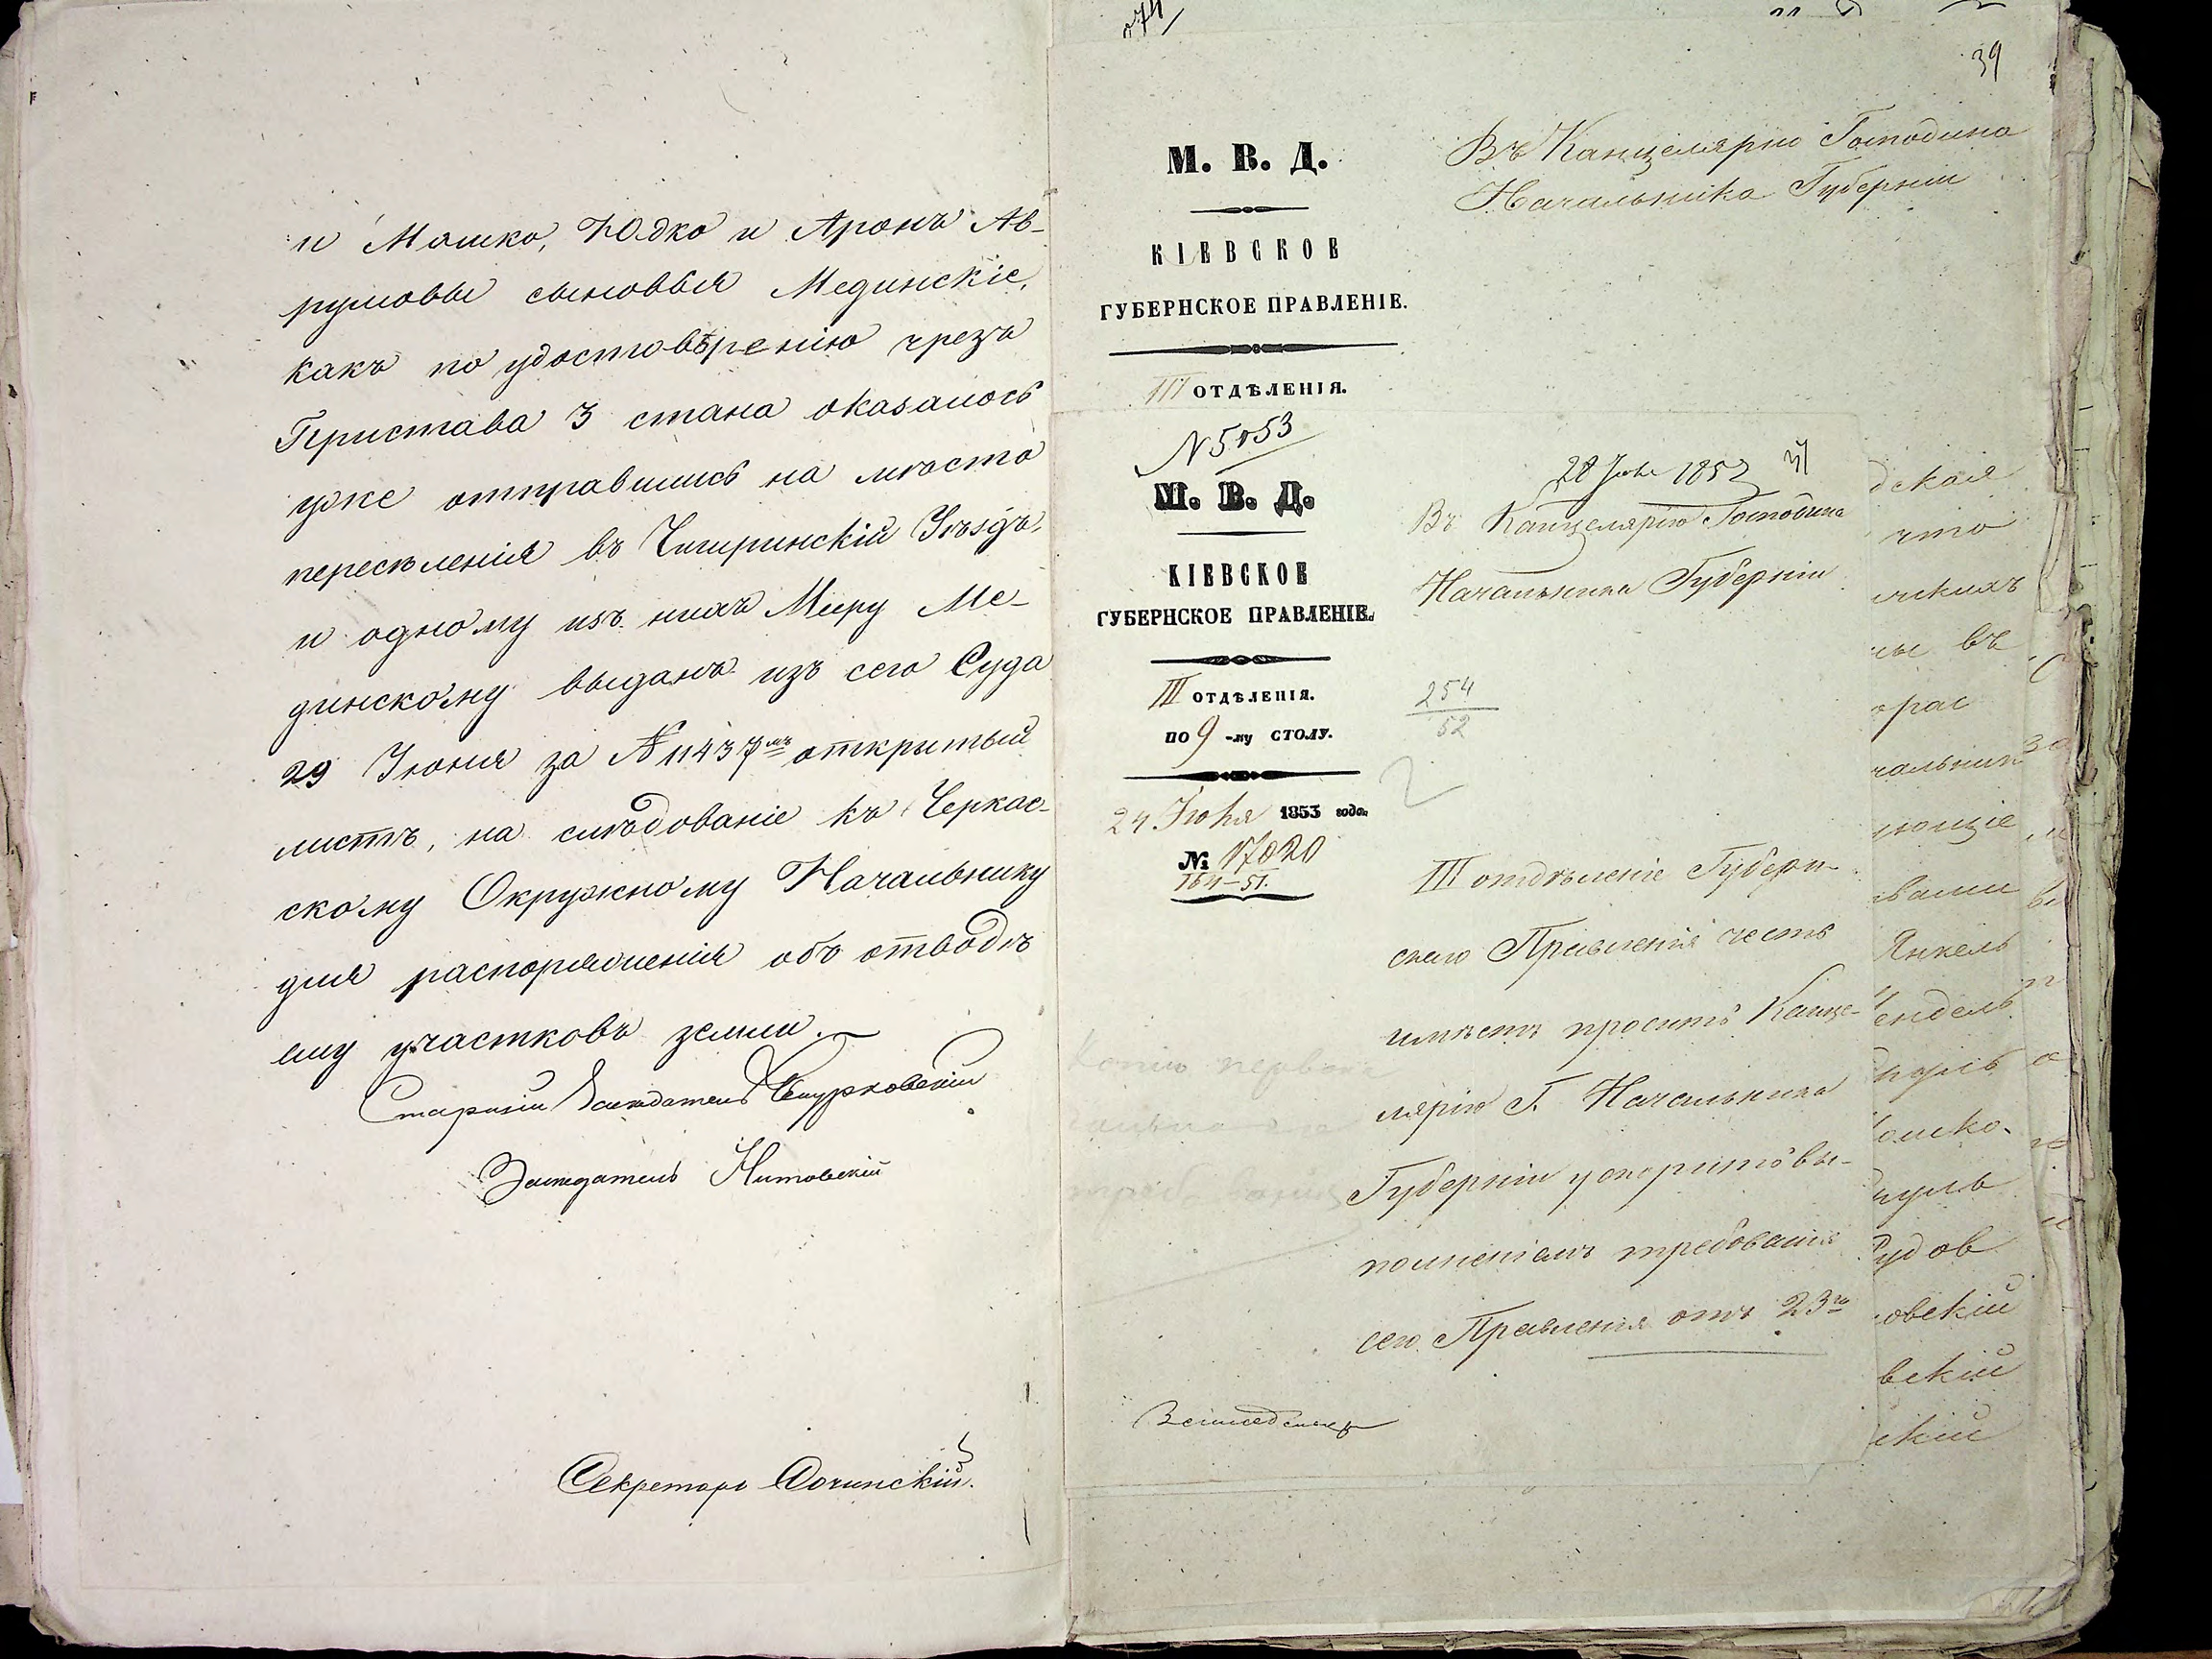 и Мошко, Юдко и Аронъ Ав-
румовы сыновья Мединскіе,
какъ по удостовѣренію чрезъ
Пристава 3 стана оказалось
уже отправились на мѣсто
переселенія въ Чигиринскій Уѣздъ,
и одному изъ нихъ Меру Ме-
динскому выданъ изъ сего Суда
29 Іюня за № 11437мъ открытый
листъ, на слѣдованіе къ Черкас-
скому Окружному Начальнику
для распоряженія объ отводѣ
ему участковъ земли.
Старшій Засѣдатель
Засѣдатель Нитовскій
Секретарь Сочинскій.
39
М. В. Д.
КІЕВСКОЕ
ГУБЕРНСКОЕ ПРАВЛЕНІЕ.
III ОТДѢЛЕНІЯ.
Въ Канцелярію Господина
Начальника Губерніи
М. В. Д.
КІЕВСКОЕ
ГУБЕРНСКОЕ ПРАВЛЕНІЕ.
III ОТДѢЛЕНІЯ.
ПО 9 -му СТОЛУ.
24 Іюля 1853 года.
№ 17020
164-51.
Въ Канцелярію Господина
Начальника Губерніи
254
52
III отдѣленіе Губерн-
скаго Правленія честь
имѣетъ просить Канце-
лярію Г. Начальника
Губерніи ускорить вы-
полненіемъ требованія
сего Правленія отъ 23го
дская
что
ческихъ
ные въ
рас
чальник
ющіе
вами
Янкель
ендель
нуль
ошко.
нуль
удов
овскій
вскій
скій